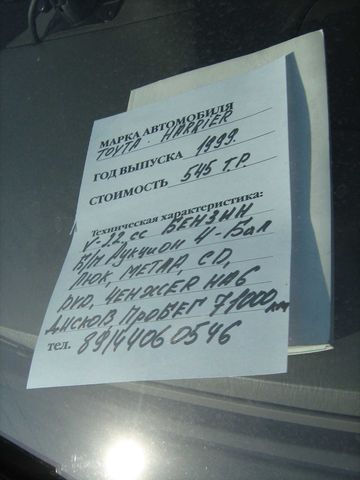 МАРКА АВТОМОБИЛЯ
TOYTA. HARRIER
ГОД ВЫПУСКА 1999.
СТОИМОСТЬ 545 Т.Р.
Техническая характеристика:
V-2.2, сс БЕНЗИН
Б/П АУКЦИОН 4-Бал
ЛЮК, МЕТАЛ, CD,
DVD, ЧЕНЖЕР НА 6
ДИСКОВ, ПРОБЕГ 71000 км
тел. 89144060546